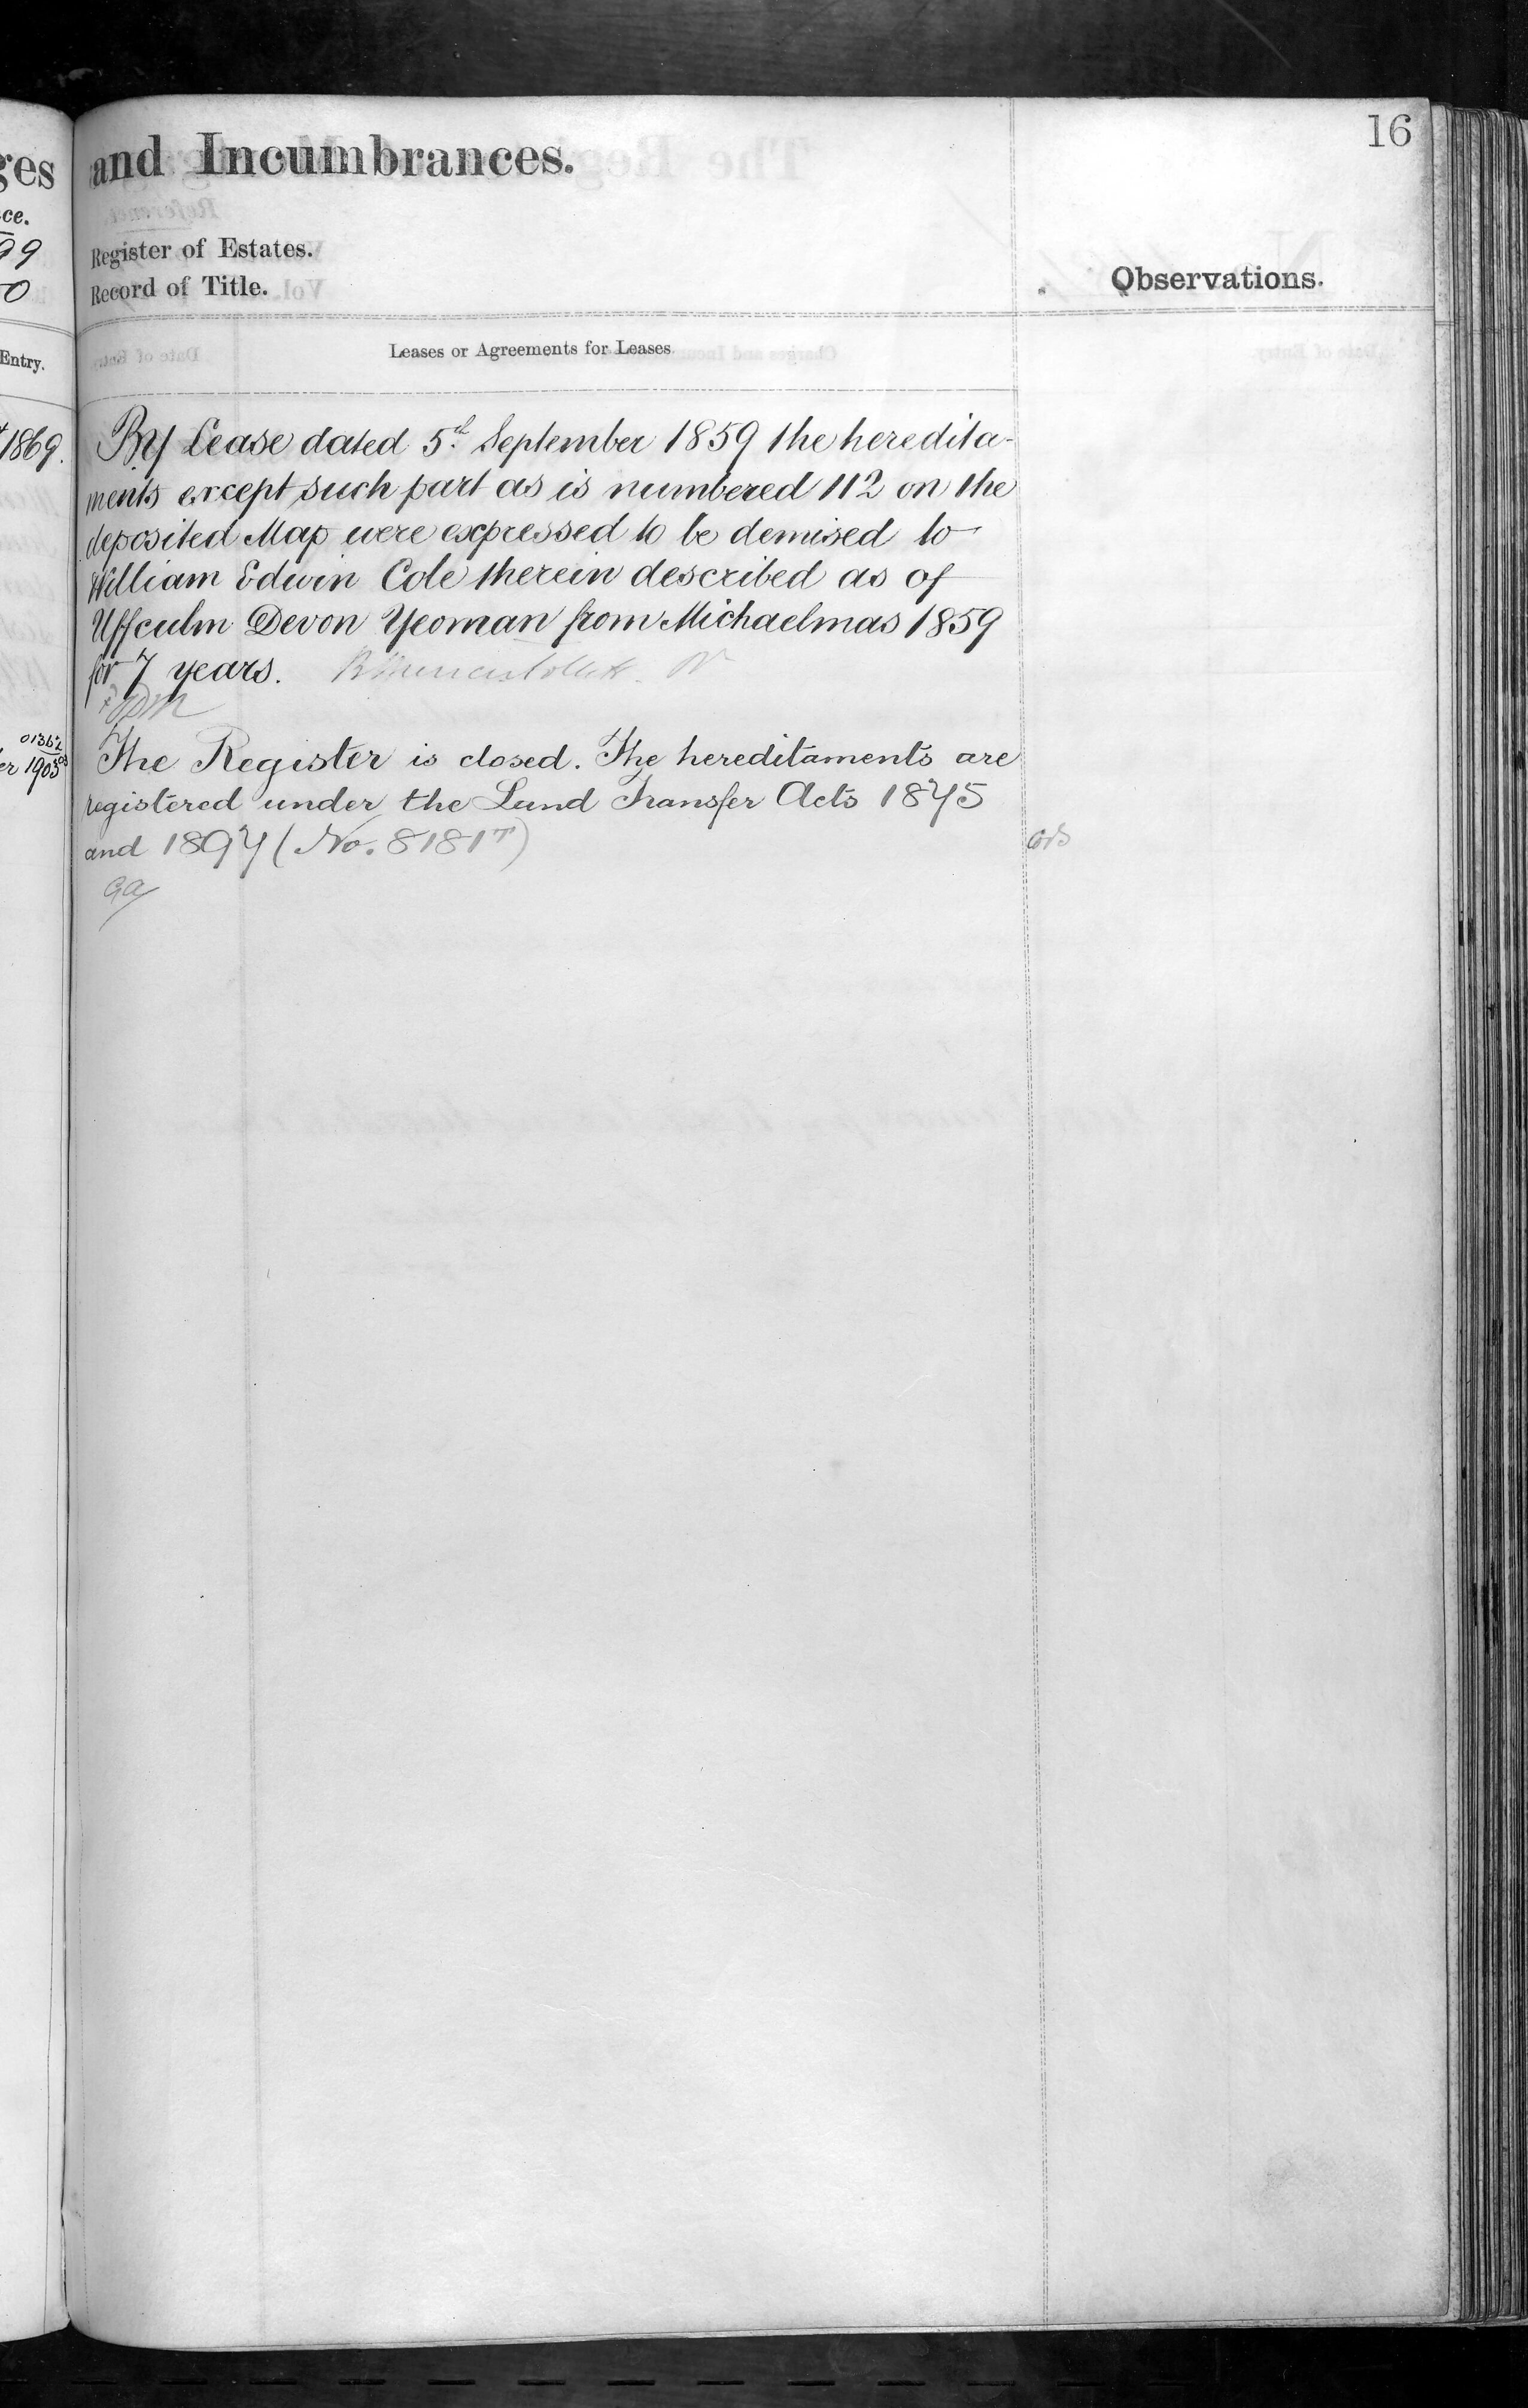 16
and Incumbrances.
Register of Estates.
Record of Title.
Observations.
Leases or Agreements for Leases
By Lease dated 5th September 1859 the heredita-
ments except such part as is numbered 112 on the
deposited Map were expressed to be demised to
William Edwin Cole therein described as of
Uffculm Devon Yeoman from Michaelmas 1859
for 7 years.
The Register is closed. The hereditaments are
registered under the Land Transfer Acts 1875
and 1897 (No. 8181T)
ges
ce.
99
0
Entry.
1869.
01362
er 1903